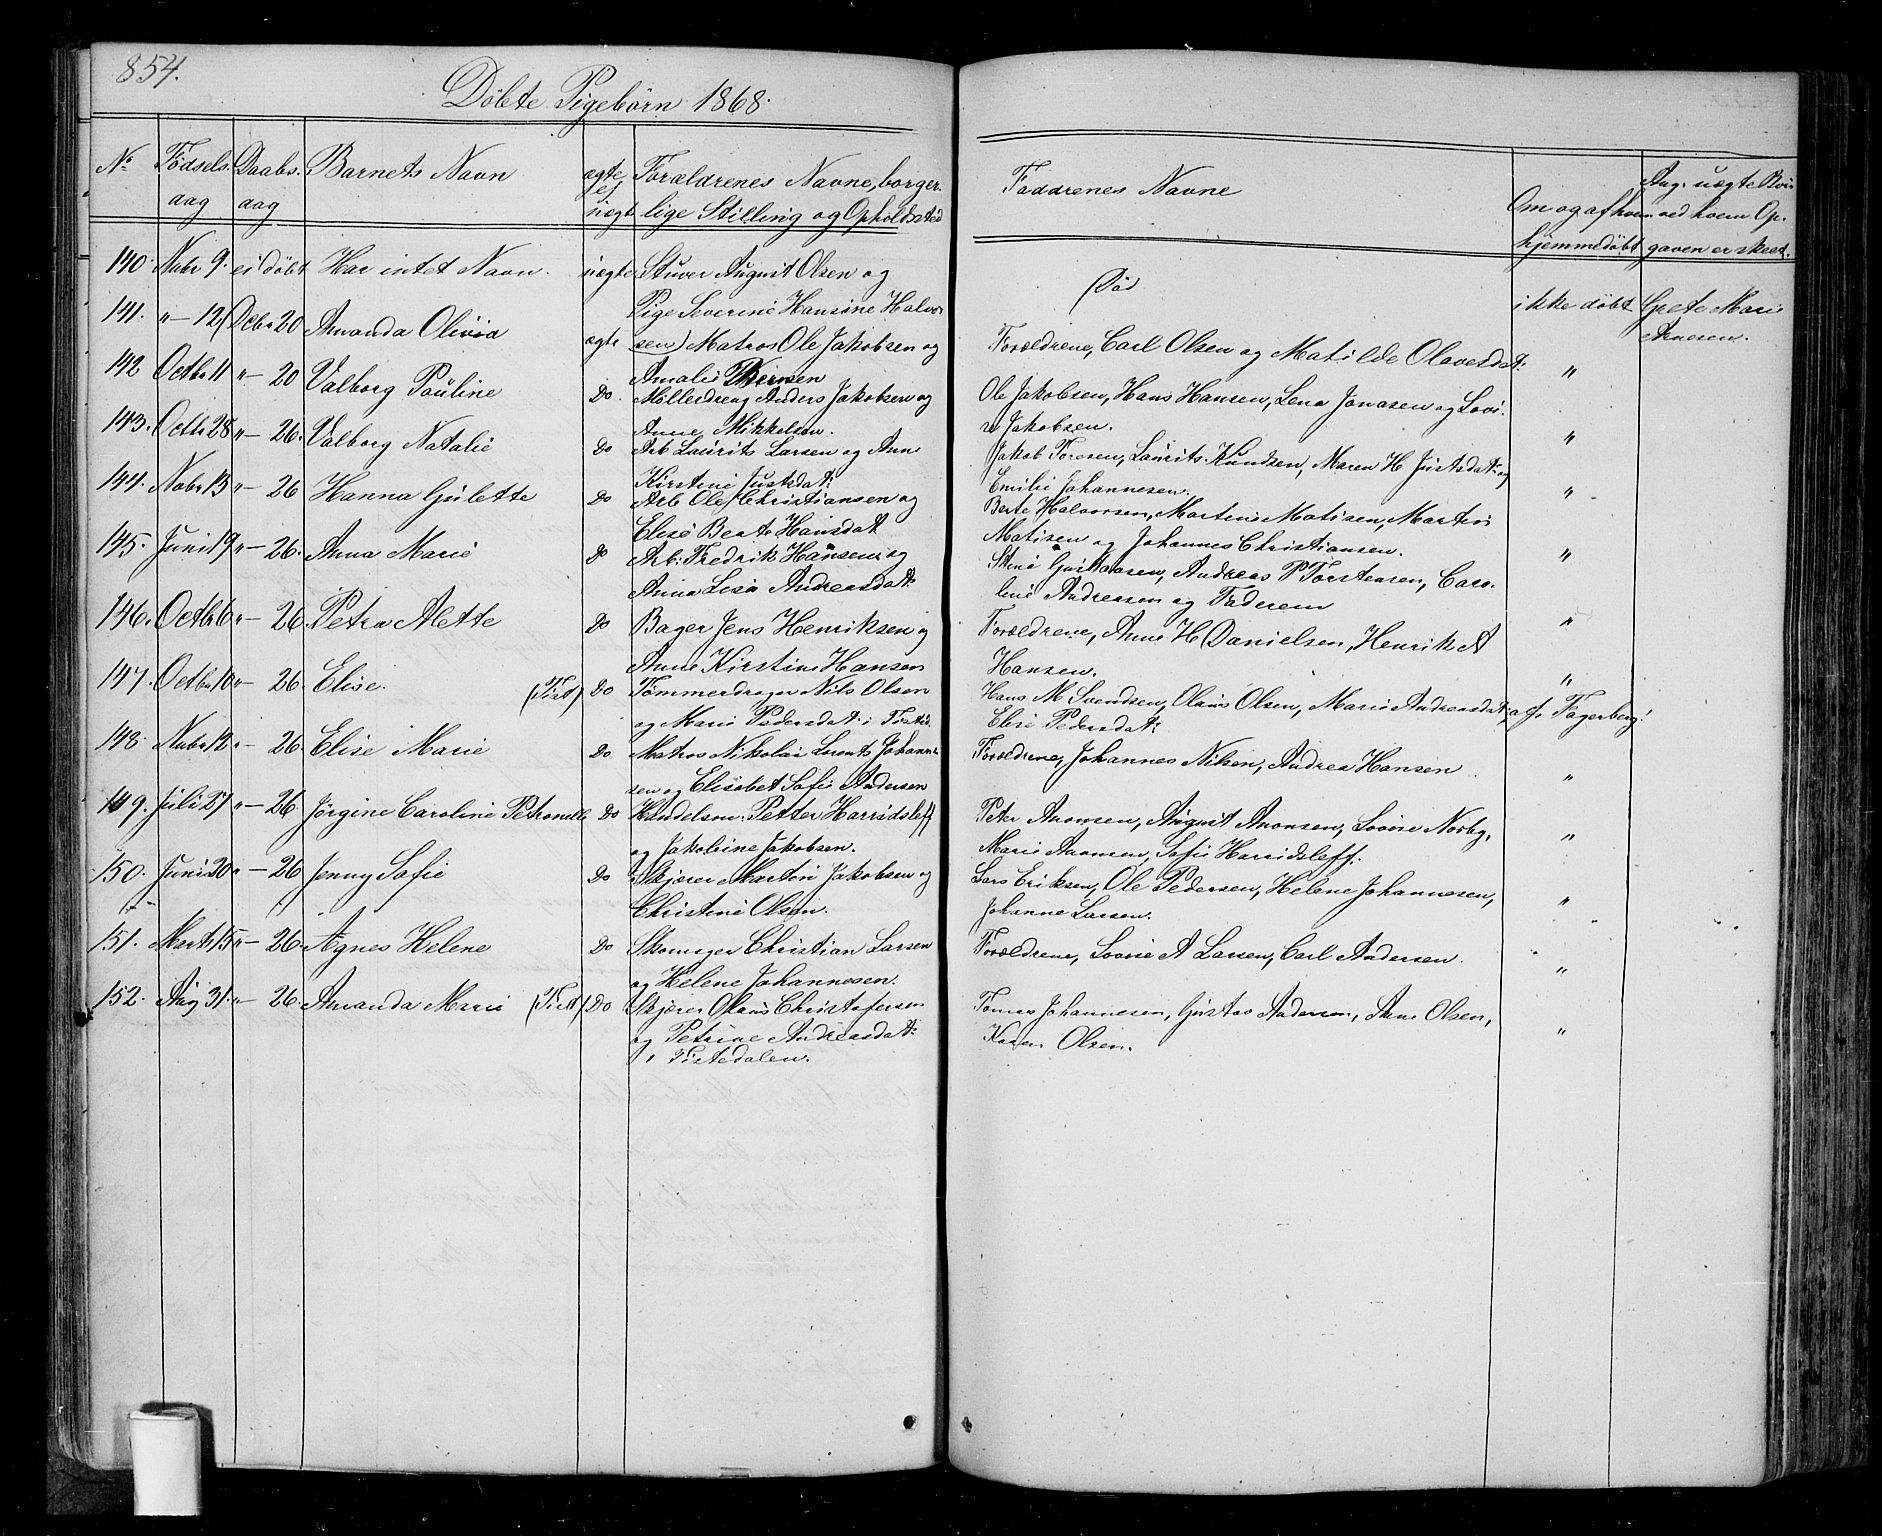 854.
Döbte Pigebörn 1868.
No Födsels- Daabs- Barnets Navn ægte Forældrenes Navne, borger-
dag dag ej uægt lige Stilling og Opholdssted
Faddrenes Navne
Om og af hvem hjemmedöbt
Ang. uægte Börn ved hvem Opgaven er skeet.
140. Nobr 9. ei döbt Har intet Navn. uægte Stuver August Olsen og
Pige Severine Hansine Halvorsen)
Död ikke döbt Grete Marie Arnesen.
141. " — 12 Decbr 20 Amanda Olivia ægte Matros Ole Jakobsen og
Amalie
Forældrene, Carl Olsen og Matilde Olavesdat: "
142 Octbr 11 " — 20 Valborg Pauline Do. Möllerdreng Anders Jakobsen og
Anne Mikkelsen.
Ole Jakobsen, Hans Hansen, Lena Jonasen og Lovise
Jakobsen. "
143. Octbr 28 " — 26. Valborg Natalie Do Arb Laurits Larsen og Anne
Kirstine Justsdat:
Jakob Toresen, Laurits Knudsen, Maren H Justsdat: og
Emilie Johannesen. "
144. Nobr 13 " — 26 Hanna Gulette Do Arb Ole Christiansen og
Elise Beate Hansdat
Berte Halvorsen, Martine Matisen, Martin
Matisen og Johannes Christiansen. "
145. Juni 19 " — 26. Anna Marie Do Arb: Fredrik Hansen og
Anna Lisa Andreasdat:
Stine Gustavsen, Andreas P Torstensen, Caroline
Andreasen og Faderen "
146. Octbr 6 " — 26 Petra Alette Do Bager Jens Henriksen og
Anne Kirstine Hansen
Forældrene, Anne H Danielsen, Henrik A
Hansen. "
147. Octbr 10 " — 26. Elise. (Tist) Do Tömmerdrager Nils Olsen
og Marie Pedersdat: i Tistd.
Hans M Svendsen, Olaus Olsen, Marie Andreasdat: af J. Fagerberg!
Elise Pedersdat:
148. Nobr 12 " — 26 Elise Marie Do Matros Nikolai Lorents Johannesen
og Elisabet Sofie Andersen
Forældrene, Johannes Nilsen, Andrea Hansen "
149. Juli 27 " — 26 Jörgine Caroline Petronelle Do Handelsm: Petter Harridsleff
og Jakobine Jakobsen.
Peter Anonsen, August Anonsen, Lovise Norby,
Marie Anonsen, Sofie Harridsleff. "
150. Juni 20 " — 26 Jenny Sofie Do Skjærer Martin Jakobsen og
Christine Olsen.
Lars Eriksen, Ole Pedersen, Helene Johannesen,
Johanne Larsen. "
151. Mart 15 " — 26 Agnes Helene Do Skomager Christian Larsen
og Helene Johannesen.
Forældrene, Lovise A Larsen, Carl Andersen. "
152. Aug 31. " — 26. Amanda Marie (Tist) Do Skjærer Olaus Christofersen
og Petrine Andreasdat:
i Tistedalen.
Tomas Johannesen, Gustav Andersen, Anne Olsen,
Karen Olsen. "